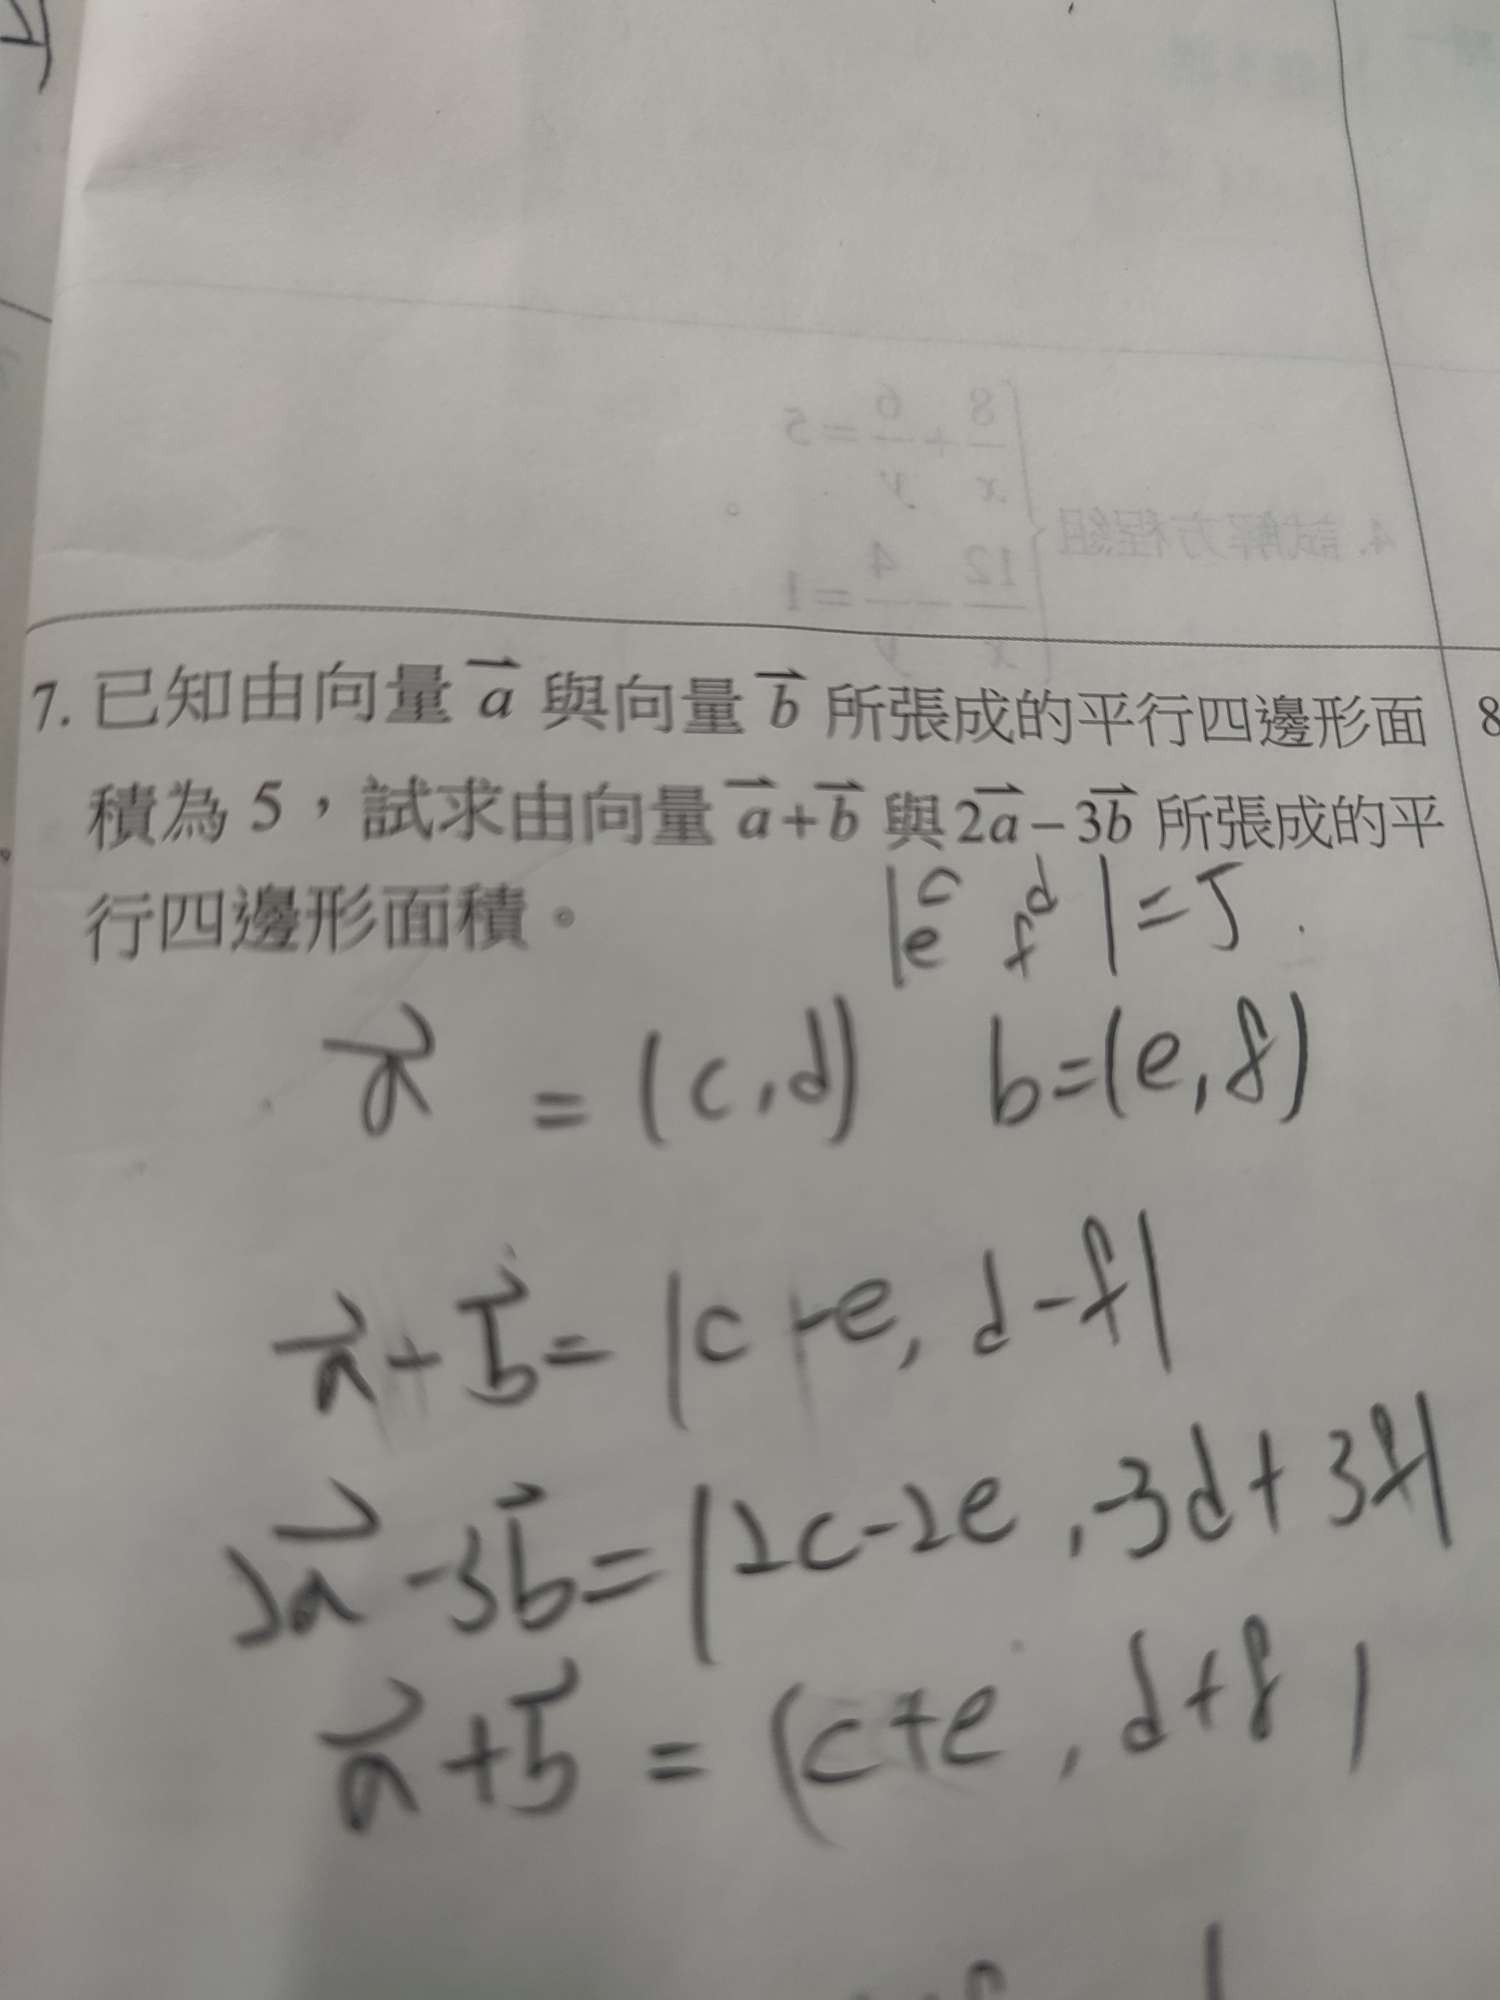 7. 已知由向量 a 與向量 b 所張成的平行四邊形面
積為 5，試求由向量 a + b 與 2a − 3b 所張成的平
行四邊形面積。
8
|c d|
|e f| = 5
a = (c, d) b = (e, f)
a + b = |c + e, d - f|
2a - 3b = |2c - 2e, -3d + 3f|
a + b = (c + e, d + f)
4. 試解方程組
8/x + 6/y = 5
12/x − 4/y = 1
。